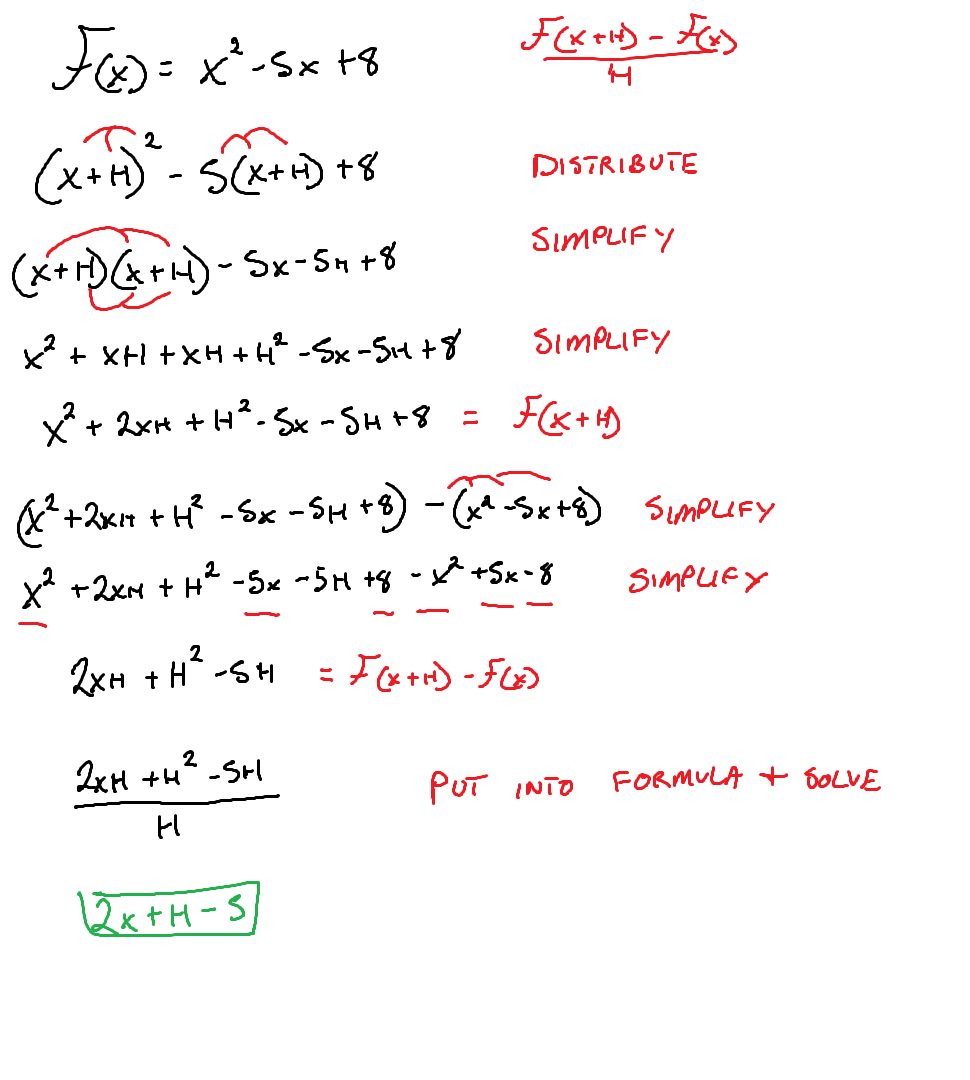 F(x) = x² - 5x + 8
F(x+H) - F(x)
H
(x+H)² - 5(x+H) + 8
DISTRIBUTE
SIMPLIFY
(x+H)(x+H) - 5x - 5H + 8
x² + xH + xH + H² - 5x - 5H + 8
SIMPLIFY
x² + 2xH + H² - 5x - 5H + 8 = F(x+H)
(x² + 2xH + H² - 5x - 5H + 8) - (x² - 5x + 8) SIMPLIFY
x² + 2xH + H² - 5x - 5H + 8 - x² + 5x - 8 SIMPLIFY
2xH + H² - 5H = F(x+H) - F(x)
2xH + H² - 5H
H
PUT INTO FORMULA + SOLVE
2x + H - 5